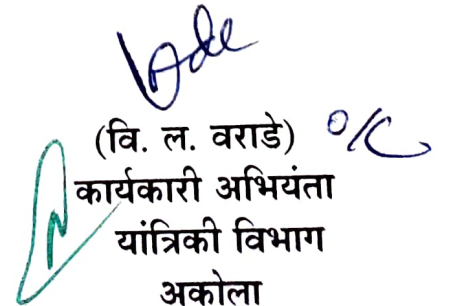 (वि. ल. वराडे) O/C
कार्यकारी अभियंता
यांत्रिकी विभाग
अकोला